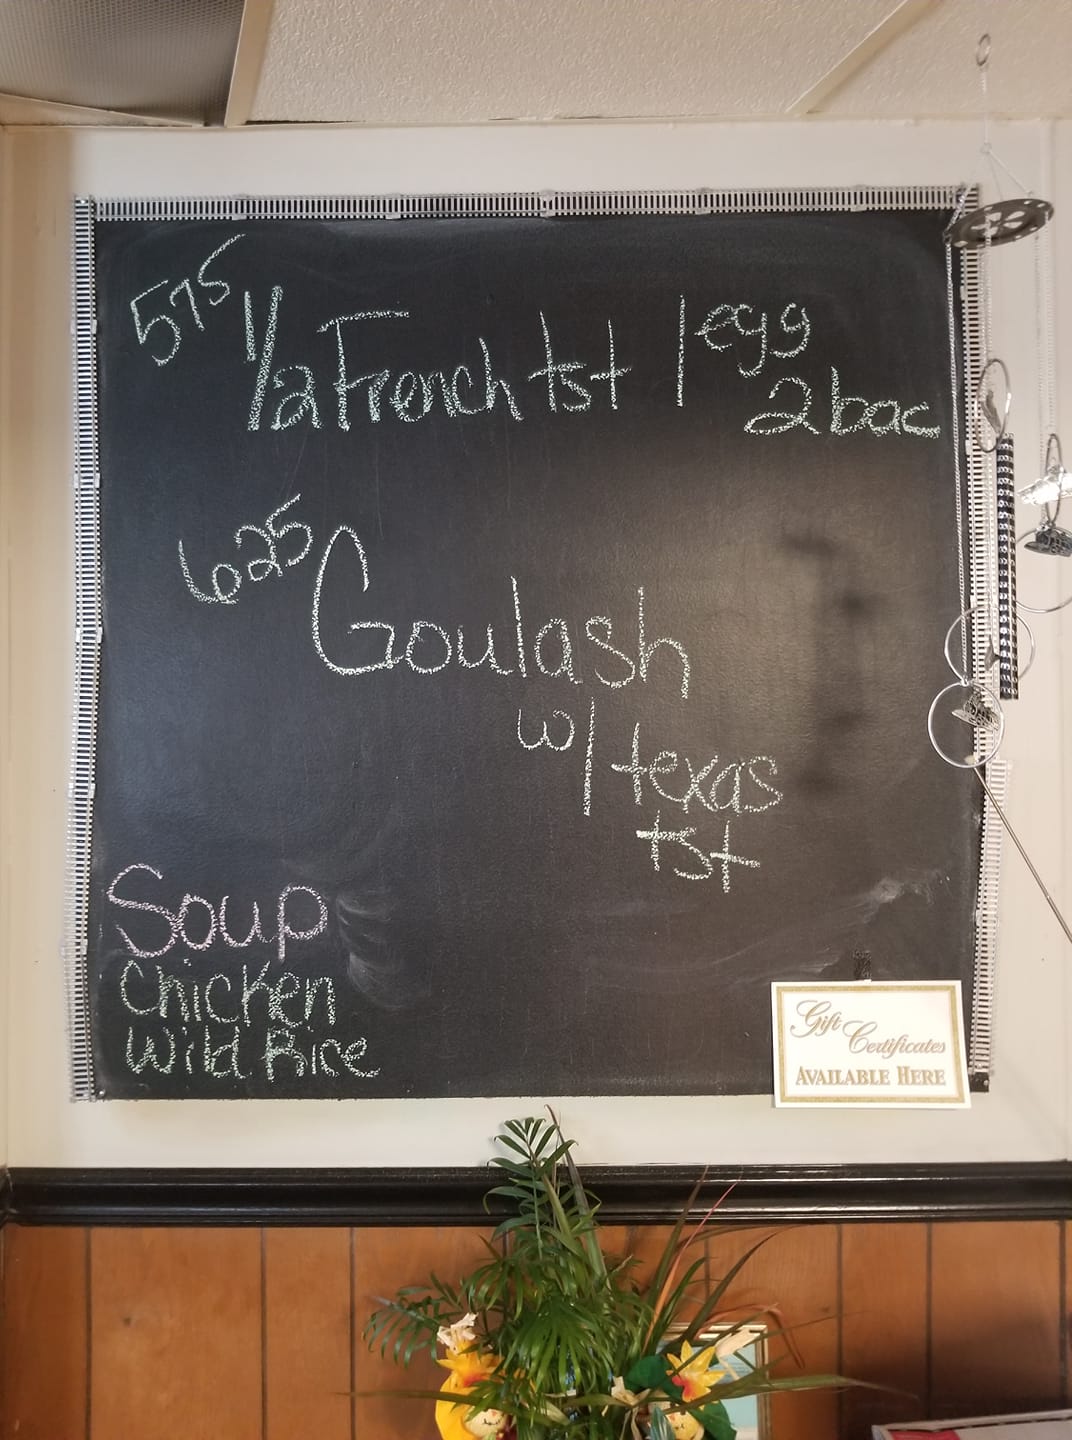 575 1/2 French tst 1 egg
2 bac
625 Goulash
w/ texas
tst
Soup
Chicken
Wild Rice
Gift
Certificates
AVAILABLE HERE